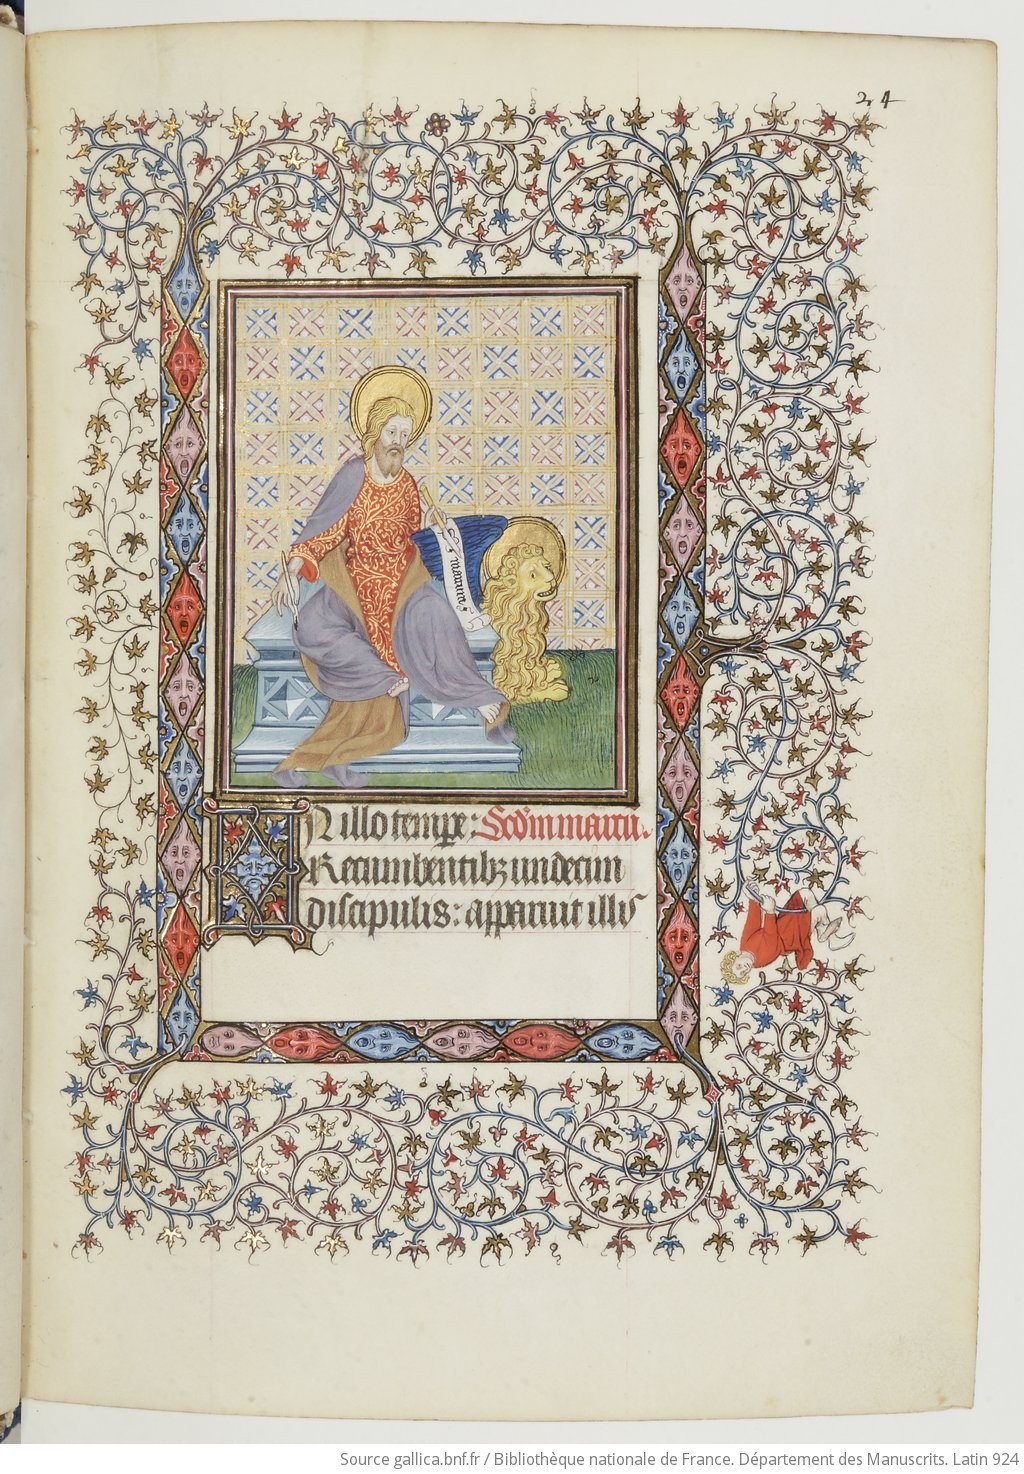 24
marcus
N illo tempe: Scdm marcu.
Recumbentibz undecim
discipulis: apparuit illis
Source gallica.bnf.fr / Bibliothèque nationale de France. Département des Manuscrits. Latin 924